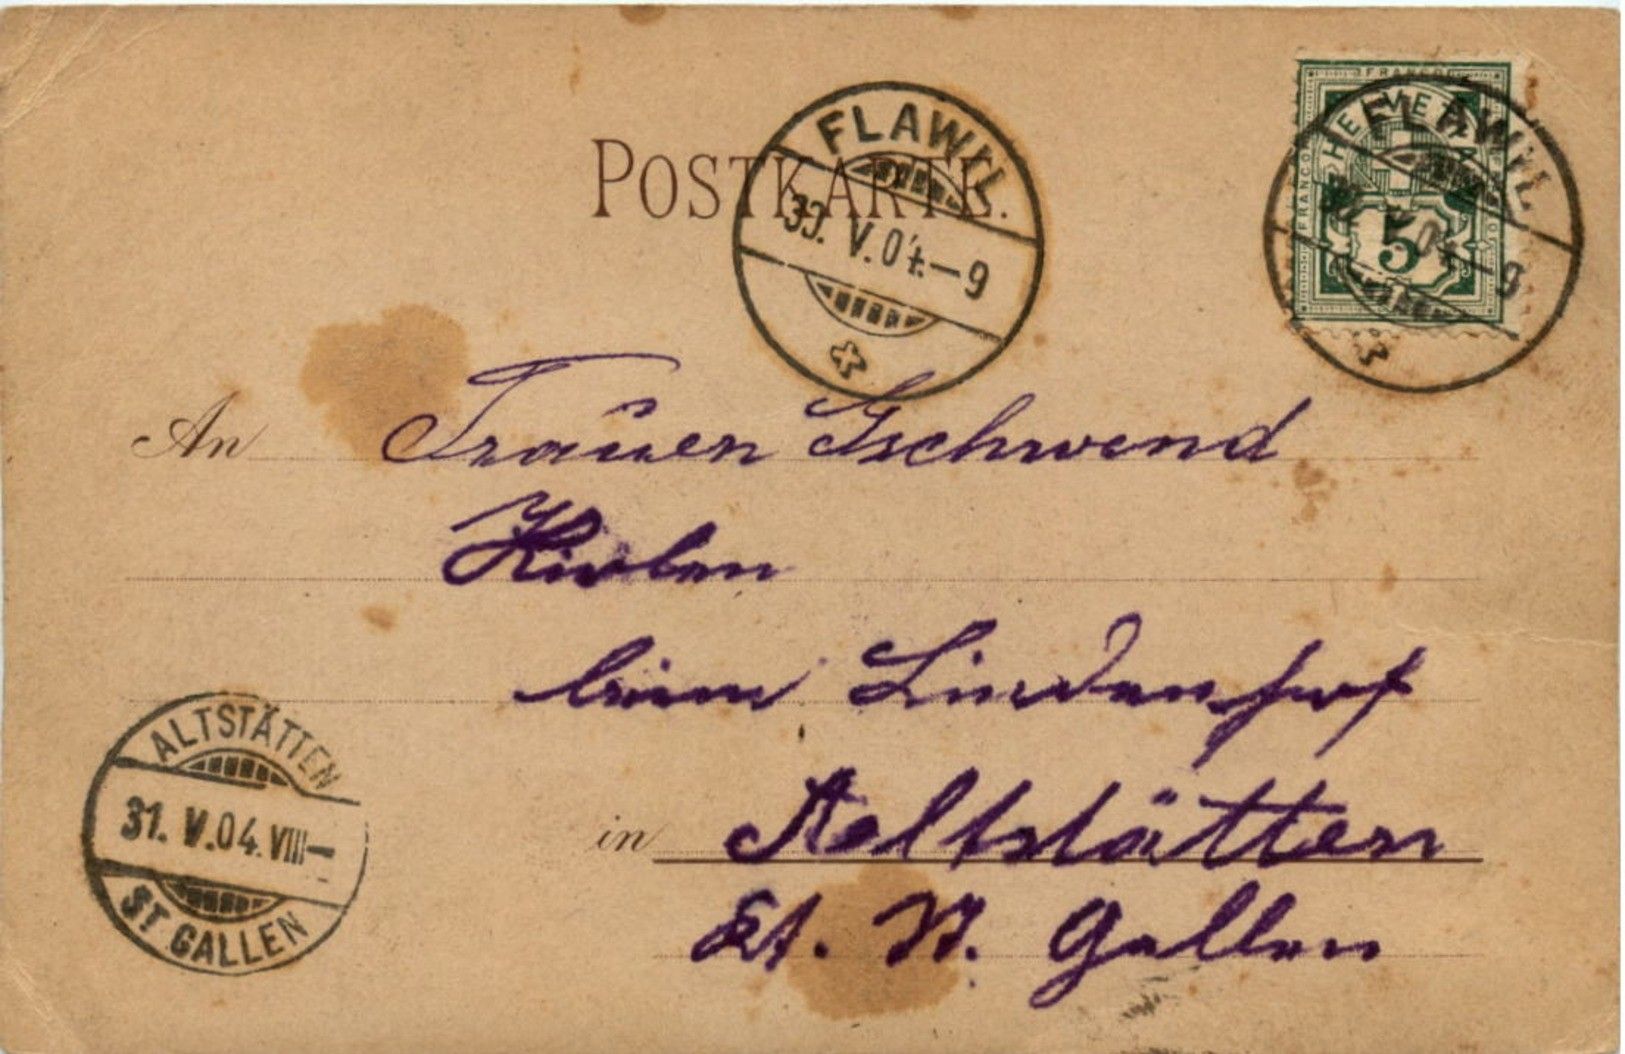 POSTKARTE.
FLAWIL
30. V. 04.—9
FRANCO
HELVETIA
FRANCO
5
FLAWIL
V. 04.—9
An Frauen Gschwend
beim Lindenhof
in Altstätten
Kt. St. Gallen
ALTSTÄTTEN
31. V. 04. VIII—
ST GALLEN